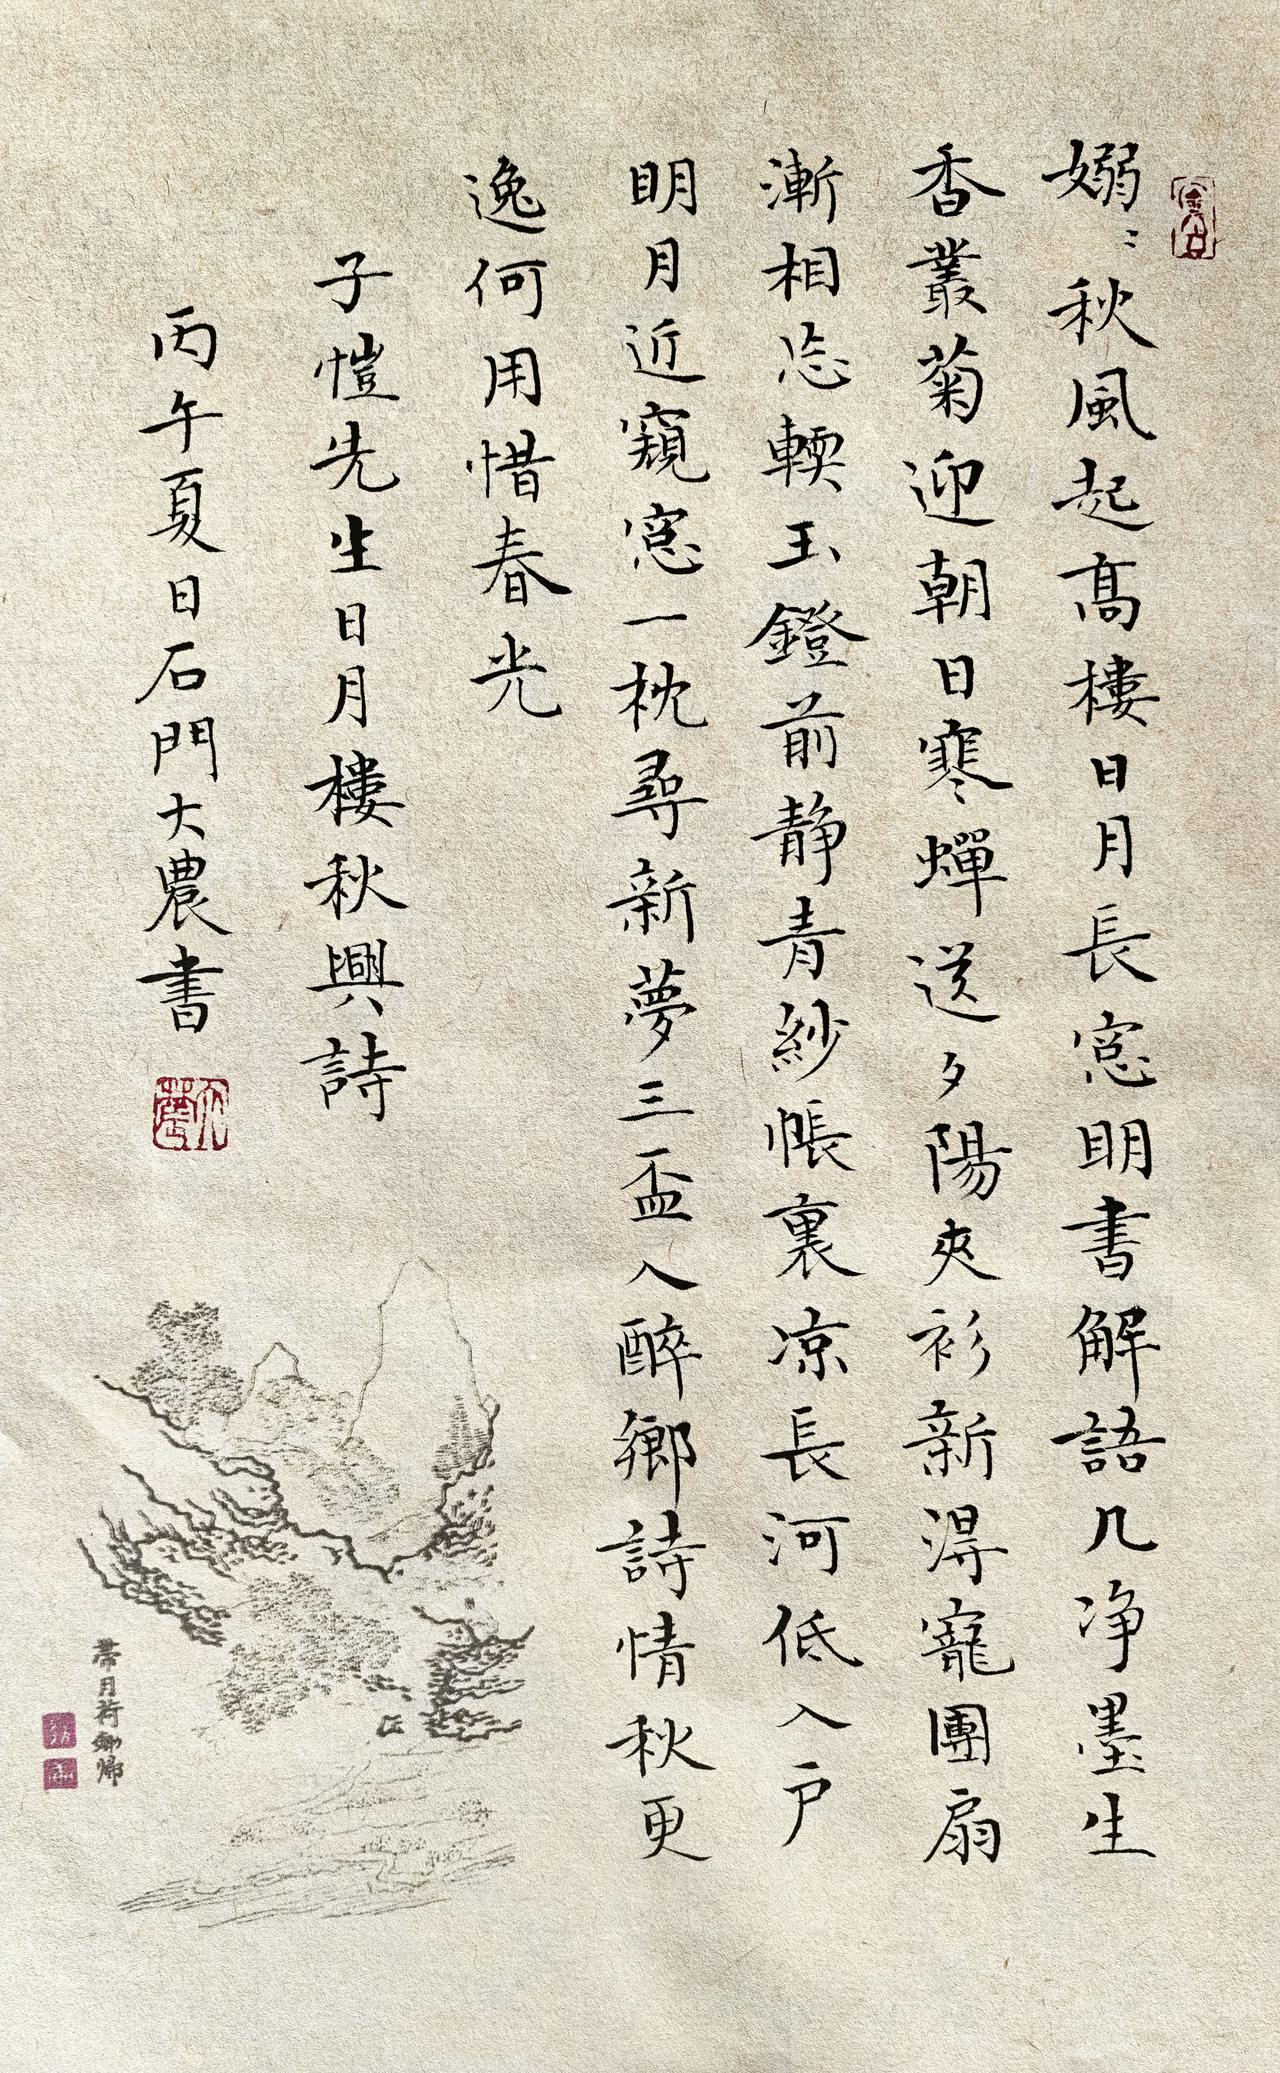 嫋〻秋風起高樓日月長窓明書解語几净墨生
香叢菊迎朝日寒蟬送夕陽夾衫新淂寵團扇
漸相忘輭玉鐙前静青紗帳裏凉長河低入戶
明月近窺窓一枕尋新夢三盃入醉鄉詩情秋更
逸何用惜春光
子愷先生日月樓秋興詩
丙午夏日石門大農書
帶月荷鋤歸